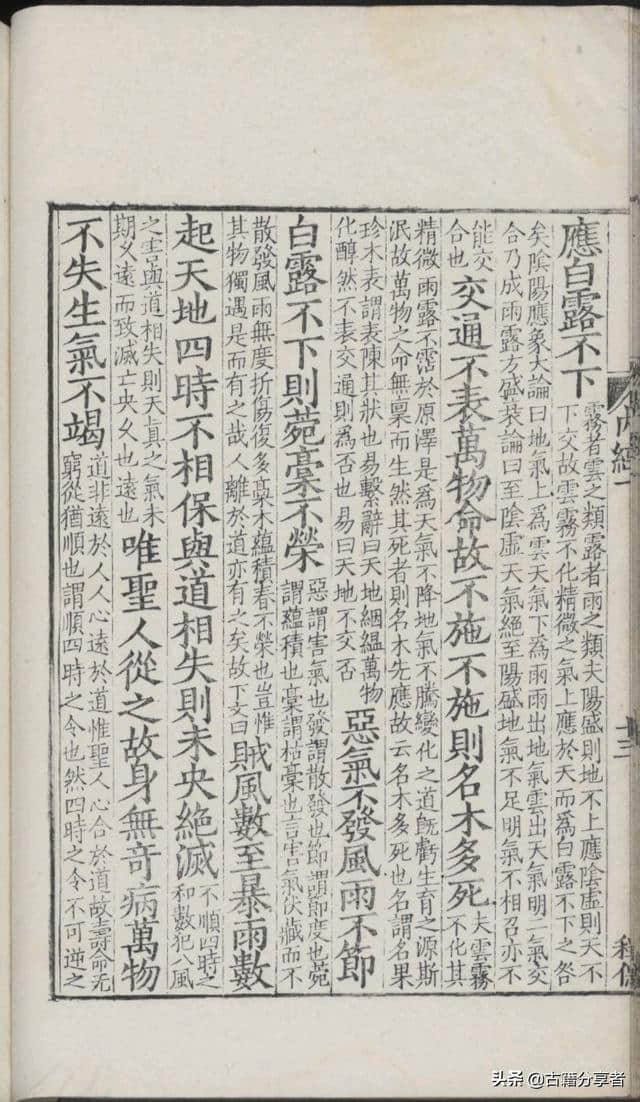 應白露不下
霧者雲之類露者雨之類夫陽盛則地不上應陰虛則天不
下交故雲霧不化精微之氣上應於天而為白露不下之咎
矣陰陽應象大論曰地氣上為雲天氣下為雨雨出地氣雲出天氣明二氣交
合乃成雨露方盛衰論曰至陰虛天氣絕至陽盛地氣不足明氣不相召亦不
能交
合也
交通不表萬物命故不施不施則名木多死
夫雲霧
不化其
精微雨露不霑於原澤是為天氣不降地氣不騰變化之道旣虧生育之源斯
泯故萬物之命無稟而生然其死者則名木先應故云名木多死也名謂名果
珍木表謂表陳其狀也易繫辭曰天地絪縕萬物
化醇然不表交通則為否也易曰天地不交否
惡氣不發風雨不節
白露不下則菀槀不榮
惡謂害氣也發謂散發也節謂節度也菀
謂蘊積也槀謂枯槀也言害氣伏藏而不
散發風雨無度折傷復多槀木蘊積春不榮也豈惟
其物獨遇是而有之哉人離於道亦有之矣故下文曰
賊風數至暴雨數
起天地四時不相保與道相失則未央絕滅
不順四時之
和數犯八風
之害與道相失則天真之氣未
期久遠而致滅亡央久也遠也
唯聖人從之故身無奇病萬物
不失生氣不竭
道非遠於人人心遠於道惟聖人心合於道故壽命无
窮從猶順也謂順四時之令也然四時之令不可逆之
头条 @古籍分享者